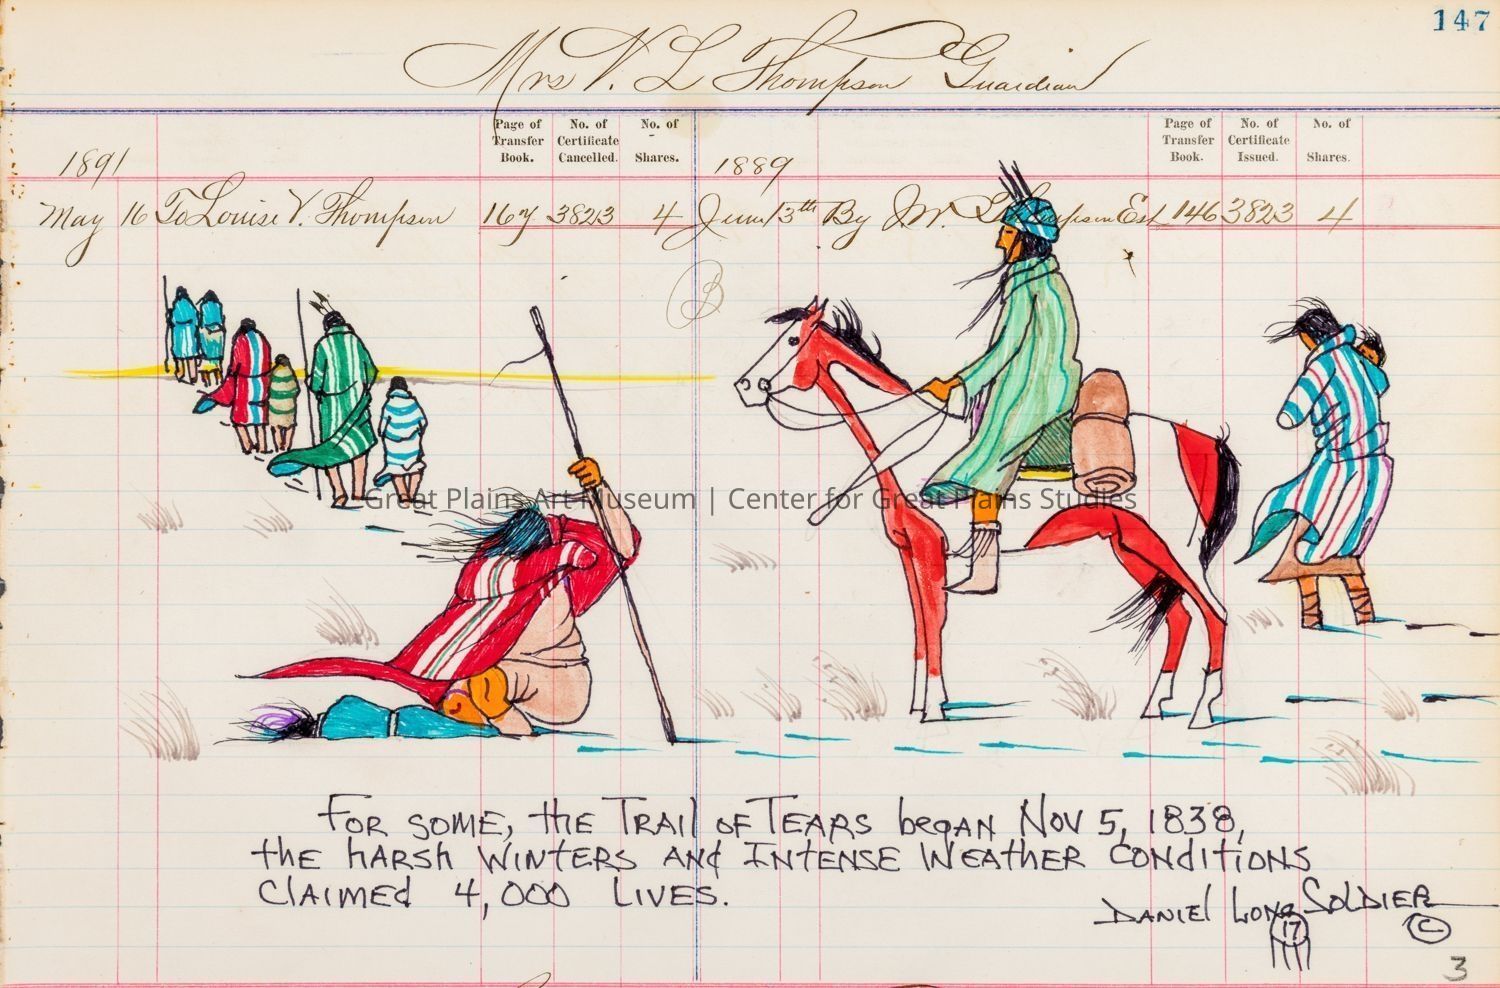 147
Mrs V. L Thompson Guardian
Page of Transfer Book.
No. of Certificate Cancelled.
No. of Shares.
Page of Transfer Book.
No. of Certificate Issued.
No. of Shares.
1891
1889
May 16 To Louise V. Thompson 167 3823 4 June 13th By W. L Thompson Est 146 3823 4
B
Great Plains Art Museum | Center for Great Plains Studies
FOR SOME, tHE TRAIL OF TEARS began NOV 5, 1838,
tHE HARSH WINTERS ANd INTENSE WEATHER CONditiONS
CLAIMEd 4,000 LIVES.
DANIEL LONG SOLDIER
17
©
3